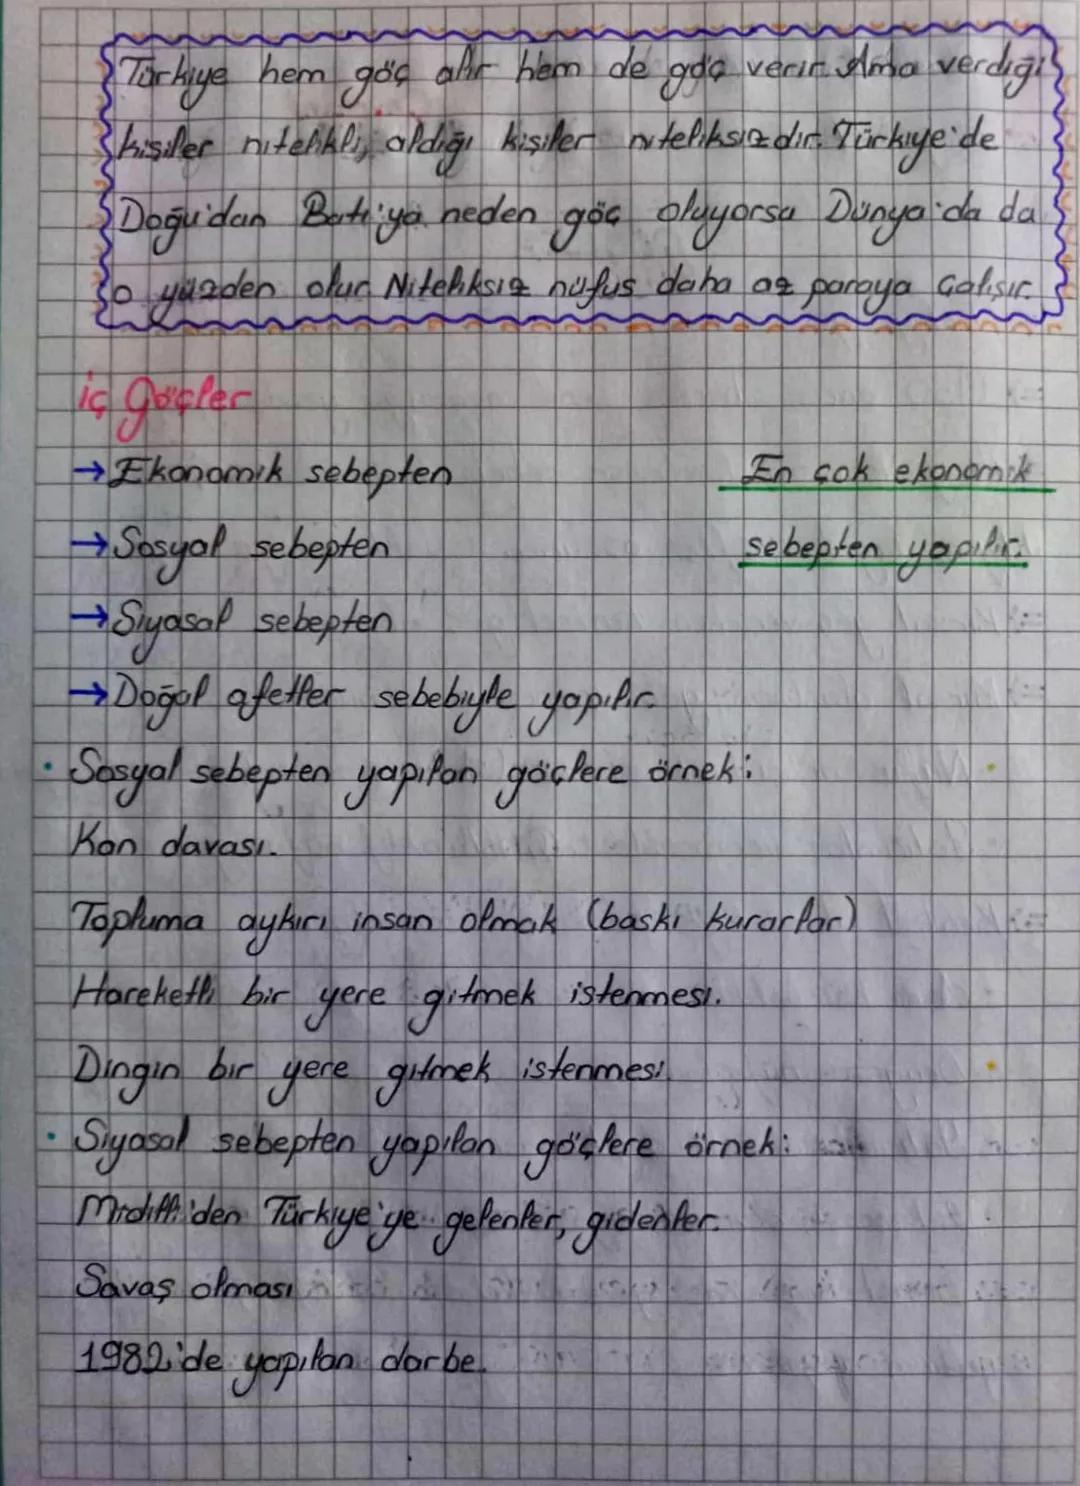 Türkiye hem göç alır hem de göç verir. Ama verdiği
kişiler nitelikli, aldığı kişiler niteliksizdir. Türkiye'de
Doğu'dan Batı'ya neden göç oluyorsa Dünya'da da
o yüzden olur. Niteliksiz nüfus daha az paraya çalışır.
iç göçler
→ Ekonomik sebepten
En çok ekonomik
→ Sosyal sebepten
sebepten yapılır.
→ Siyasal sebepten
→ Doğal afetler sebebiyle yapılır.
• Sosyal sebepten yapılan göçlere örnek:
Kan davası.
Topluma aykırı insan olmak (baskı kurarlar)
Hareketli bir yere gitmek istenmesi.
Dingin bir yere gitmek istenmesi
• Siyasal sebepten yapılan göçlere örnek:
'den Türkiye'ye gelenler, gidenler.
Savaş olması
1982'de yapılan darbe.